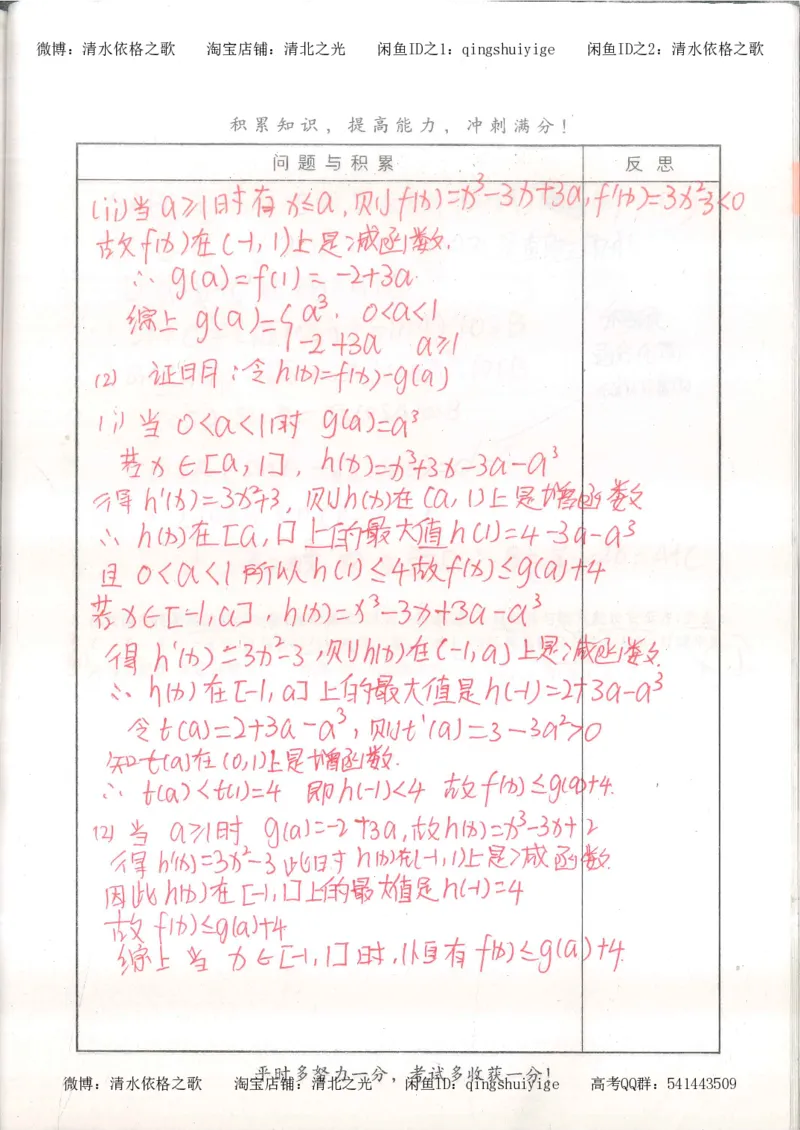 微博：清水依格之歌 淘宝店铺：清北之光 闲鱼ID之1：qingshuiyige 闲鱼ID之2：清水依格之歌
积累知识，提高能力，冲刺满分！
问题与积累 反思
(ii)当a≥1时有x≤a,则f(x)=x³-3x+3a,f'(x)=3x²-3<0
故f(x)在(-1,1)上是减函数.
∴g(a)=f(1)=-2+3a.
综上 g(a)={a³, 0<a<1
-2+3a a≥1
(2) 证明:令h(x)=f(x)-g(a)
(i)当0<a<1时 g(a)=a³
若x∈[a,1],h(x)=x³+3x-3a-a³
得h'(x)=3x²+3,则h(x)在(a,1)上是增函数
∴h(x)在[a,1]上的最大值h(1)=4-3a-a³
且0<a<1所以h(1)≤4故f(x)≤g(a)+4
若x∈[-1,a],h(x)=x³-3x+3a-a³
得h'(x)=3x²-3,则h(x)在(-1,a)上是减函数.
∴h(x)在[-1,a]上的最大值是h(-1)=2+3a-a³
令t(a)=2+3a-a³,则t'(a)=3-3a²>0
知t(a)在(0,1)上是增函数.
∴t(a)<t(1)=4 即h(-1)<4 故f(x)≤g(a)+4.
(2) 当a≥1时 g(a)=-2+3a,故h(x)=x³-3x+2
得h'(x)=3x²-3此时h(x)在(-1,1)上是减函数.
因此h(x)在[-1,1]上的最大值是h(-1)=4
故f(x)≤g(a)+4
综上当x∈[-1,1]时,恒有f(x)≤g(a)+4.
平时多努力一分，考试多收获一分！
微博：清水依格之歌 淘宝店铺：清北之光 闲鱼ID：qingshuiyige 高考QQ群：541443509